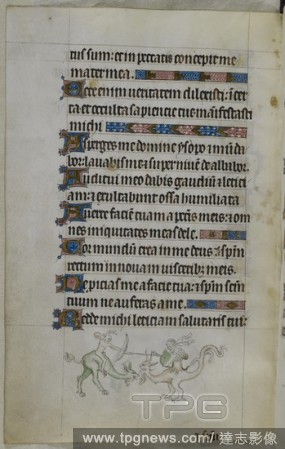 tus sum: et in peccatis concepit me
mater mea.
Ecce enim veritatem dilexisti: incer
ta et occulta sapiencie tue manifestasti
michi
Asperges me domine ysopo et mūda
bor: lavabis me et super nivē dealbabor.
Auditui meo dabis gaudiū et leticī
am: et exultabunt ossa humiliata
Averte faciē tuam a pctīs meis: et om
nes iniquitates meas dele.
Cor mundū crea in me deus: et spīm
rectum innova in visceribȝ meis.
Ne proicias me a facie tua: et spīm scīn
tuum ne auferas a me.
Redde michi leticiam salutaris tui:
TPG
www.tpgnews.com 達志影像